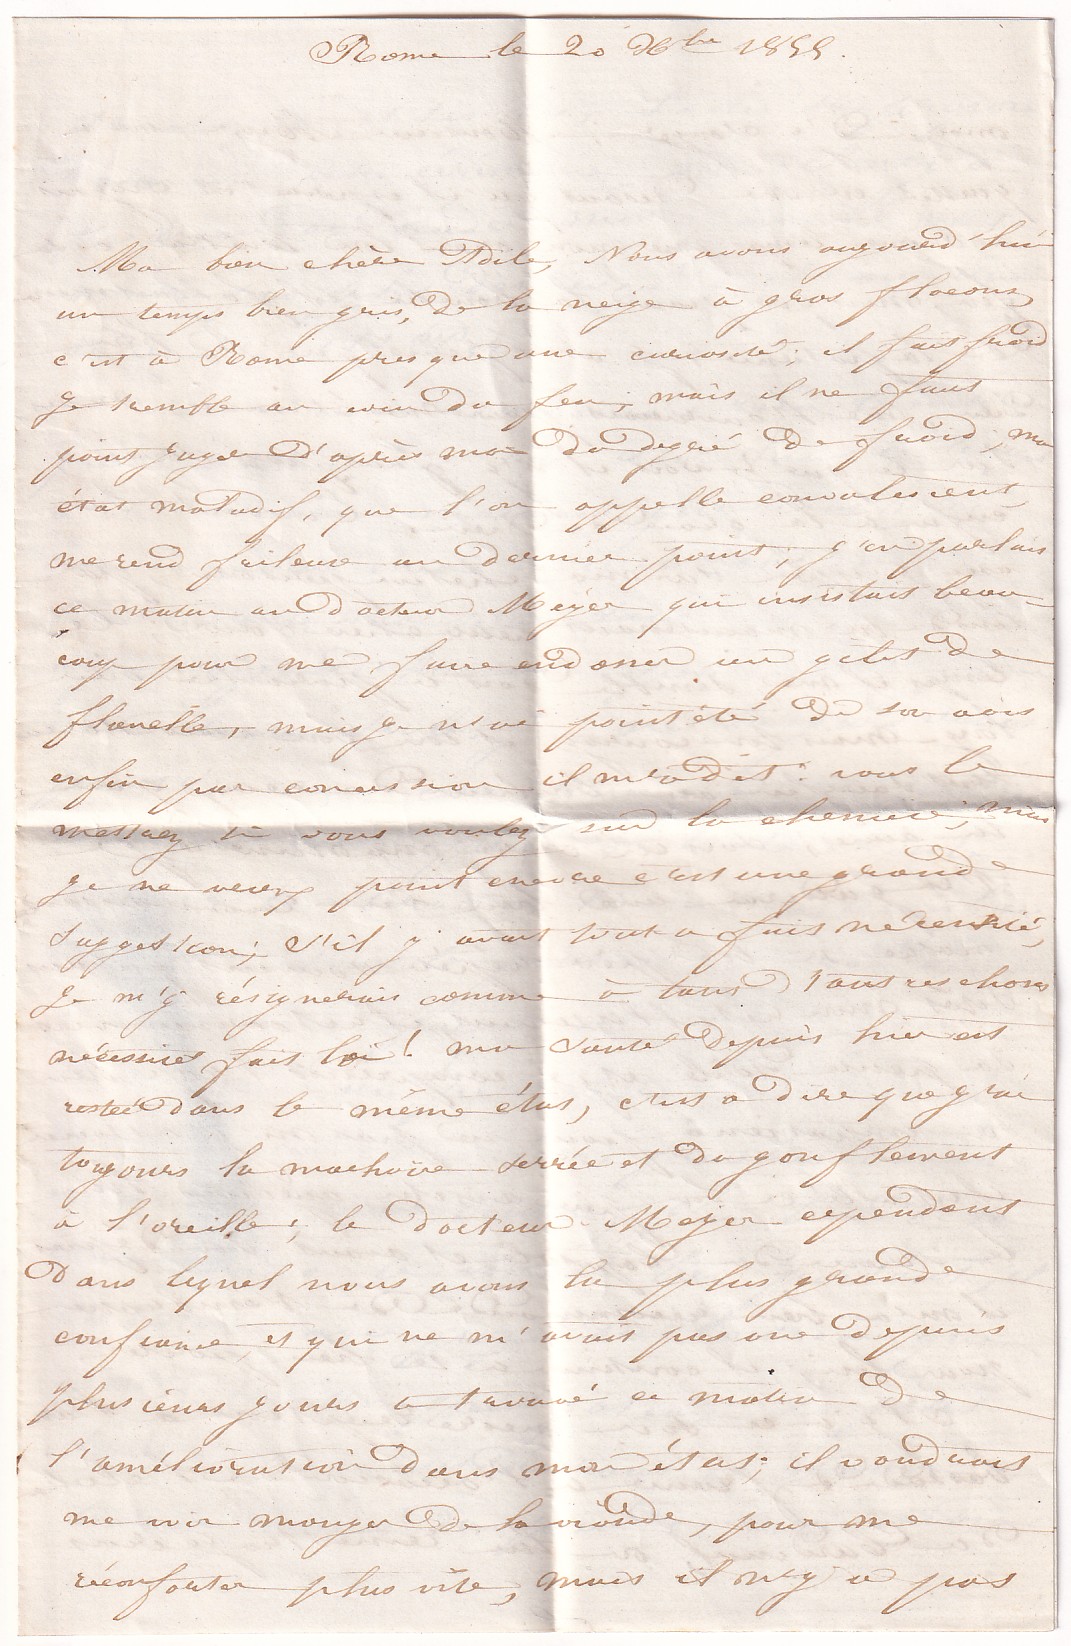 Rome le 20 Xbre 1855.
Ma bien chère Adile, Nous avons aujourd'hui
un temps bien gris, de la neige à gros flocons,
c'est à Rome presque une curiosité; il fait froid
je tremble au coin du feu; mais il ne faut
point juger d'après moi du degré de froid, mon
état maladif, que l'on appelle convalescent,
me rend frileuse au dernier point; j'en parlais
ce matin au docteur Meyer qui insistait beau-
coup pour me faire endosser un gilet de
flanelle, mais je n'ai point été de son avis
enfin par concession il m'a dit: vous le
mettrez si vous voulez sur la chemise, mais
je ne veux point encore c'est une grande
suggestion; s'il y avait tout a fait nécessité,
je m'y résignerais comme à tant d'autres choses
nécessité fait loi! ma santé depuis hier est
restée dans le même état, c'est a dire que j'ai
toujours la machoire serrée et du gonflement
à l'oreille; le docteur Meyer cependant
dans lequel nous avons la plus grande
confiance, et qui ne m'avait pas vue depuis
plusieurs jours a trouvé ce matin de
l'amélioration dans mon état; il voudrait
me voir manger de la viande, pour me
réconforter plus vite, mais il n'y a pas